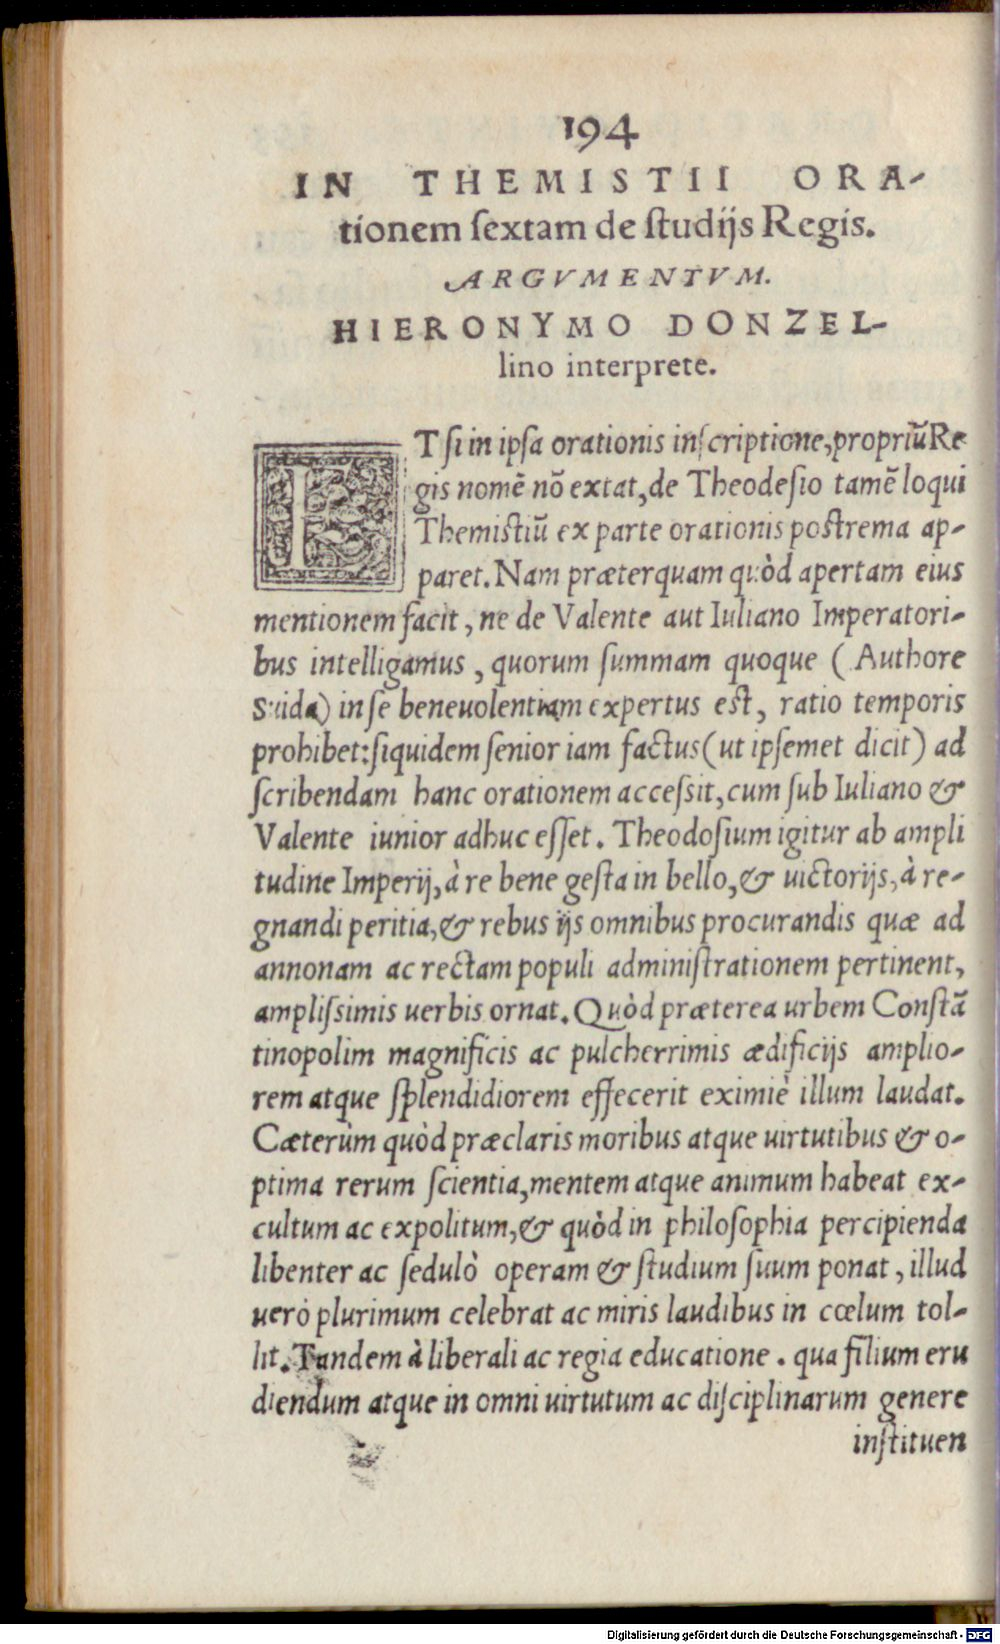 194
IN THEMISTII ORA-
tionem ſextam de ſtudijs Regis.
ARGVMENTVM.
HIERONYMO DONZEL-
lino interprete.
ET ſi in ipſa orationis inſcriptione, propriũ Re
gis nomẽ nõ extat, de Theodeſio tamẽ loqui
Themiſtiũ ex parte orationis poſtrema ap-
paret. Nam præterquam quòd apertam eius
mentionem facit, ne de Valente aut Iuliano Imperatori-
bus intelligamus, quorum ſummam quoque (Authore
Suida) in ſe beneuolentiam expertus eſt, ratio temporis
prohibet: ſiquidem ſenior iam factus (ut ipſemet dicit) ad
ſcribendam hanc orationem acceſsit, cum ſub Iuliano &
Valente iunior adhuc eſſet. Theodoſium igitur ab ampli
tudine Imperij, à re bene geſta in bello, & uictorijs, à re-
gnandi peritia, & rebus ijs omnibus procurandis quæ ad
annonam ac rectam populi adminiſtrationem pertinent,
ampliſsimis uerbis ornat. Quòd præterea urbem Conſtã
tinopolim magnificis ac pulcherrimis ædificijs amplio-
rem atque ſplendidiorem effecerit eximiè illum laudat.
Cæterùm quòd præclaris moribus atque uirtutibus & o-
ptima rerum ſcientia, mentem atque animum habeat ex-
cultum ac expolitum, & quòd in philoſophia percipienda
libenter ac ſedulò operam & ſtudium ſuum ponat, illud
uerò plurimum celebrat ac miris laudibus in cœlum tol-
lit. Tandem à liberali ac regia educatione. qua filium eru
diendum atque in omni uirtutum ac diſciplinarum genere
inſtituen
Digitalisierung gefördert durch die Deutsche Forschungsgemeinschaft - DFG